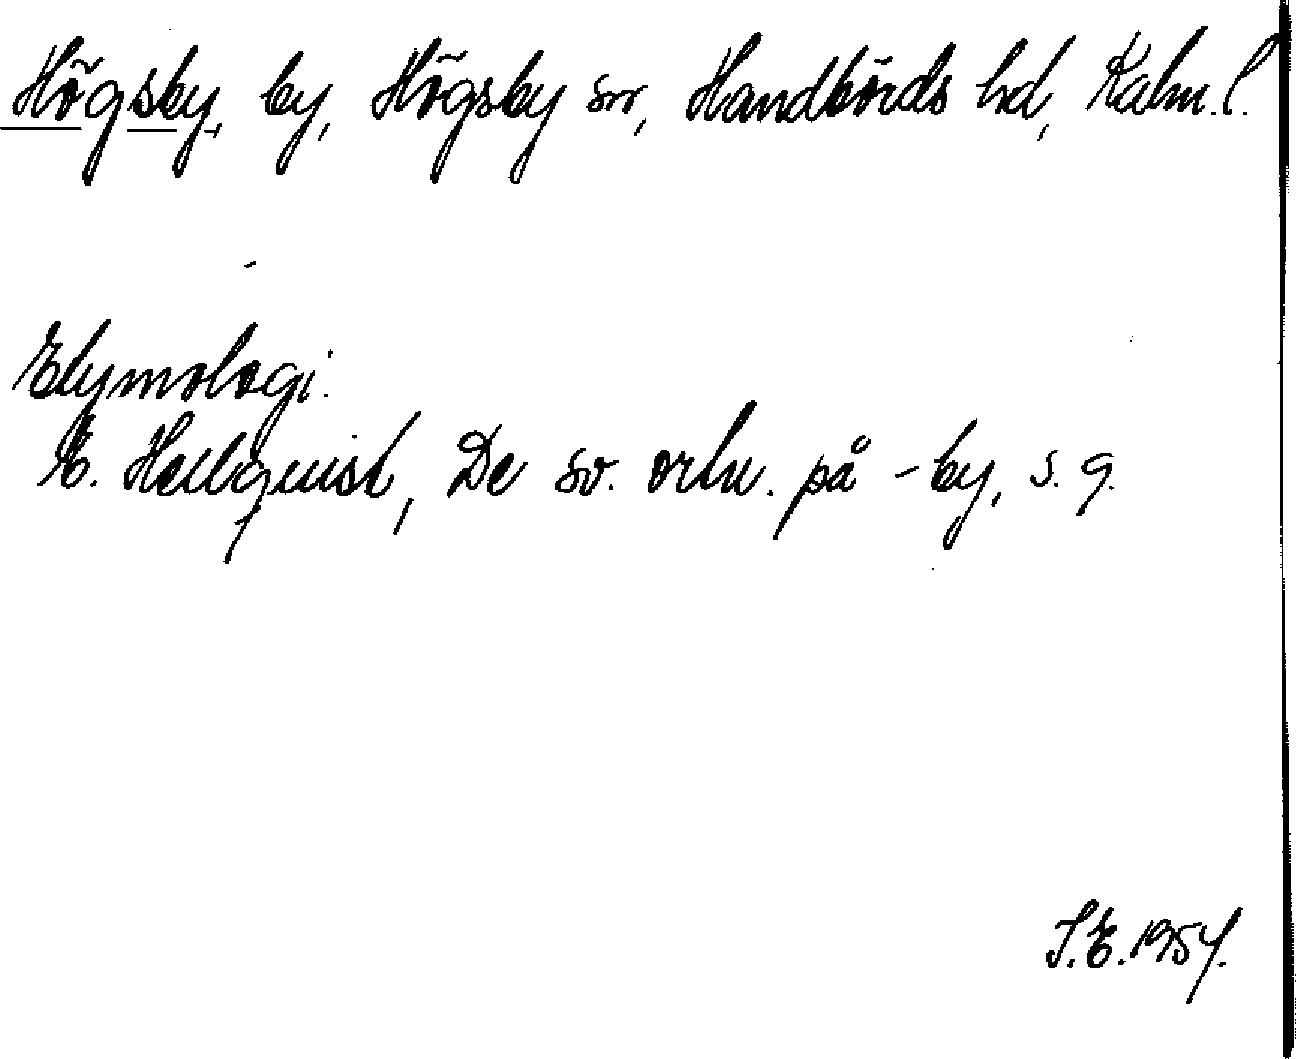 Högsby, by, Högsby sn, Handbörds hd, Kalm. l.
Etymologi:
E. Hellquist, De sv. ortn. på -by, s. 9.
S.E. 1954.